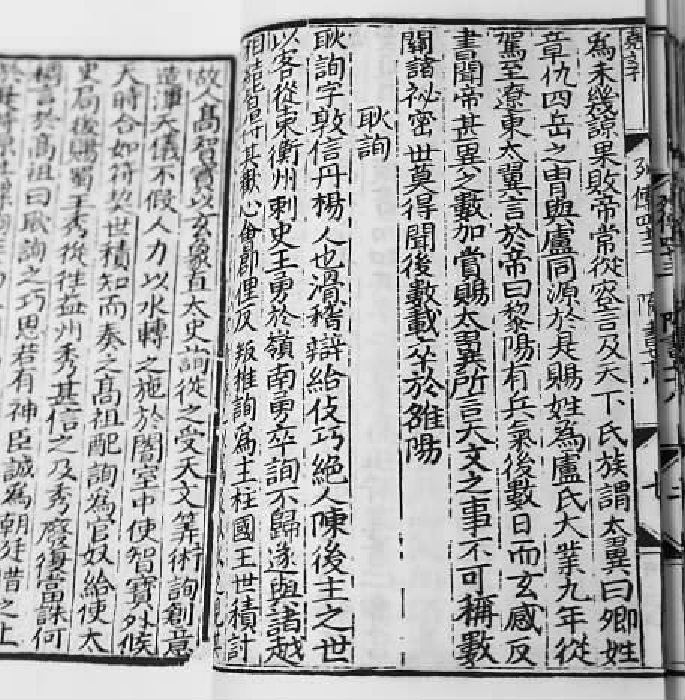 列傳四十三 隋書七十八
爲未幾諒果敗帝常從容言及天下氏族謂太翼曰卿姓
章仇四岳之胄與盧同源於是賜姓爲盧氏大業九年從
駕至遼東太翼言於帝曰黎陽有兵氣後數日而玄感反
書聞帝甚異之數加賞賜太翼所言天文之事不可稱數
關諸祕密世莫得聞後數載卒於雒陽
耿詢
耿詢字敦信丹楊人也滑稽辯給伎巧絕人陳後主之世
以客從東衡州刺史王勇於嶺南勇卒詢不歸遂與諸越
相結皆得其歡心會郡俚反叛推詢爲主柱國王世積討
故人髙智寳以玄象直太史詢從之受天文筭術詢創意
造渾天儀不假人力以水轉之施於闇室中使智寳外候
天時合如符契世積知而奏之髙祖配詢爲官奴給使太
史局後賜蜀王秀從往益州秀甚信之及秀廢復當誅何
稠言於髙祖曰耿詢之巧思若有神臣誠爲朝廷惜之上